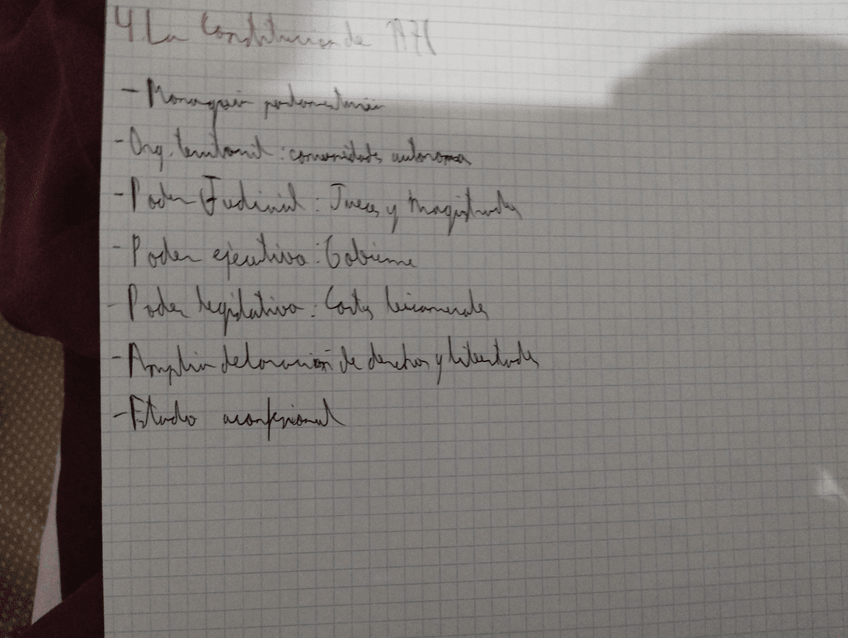 4 La Constitucion de 1978
- Monarquia parlamentaria
- Org. territorial: comunidades autonomas
- Poder Judicial: Jueces y Magistrados
- Poder ejecutivo: Gobierno
- Poder legislativo: Cortes bicamerales
- Amplia declaración de derechos y libertades
- Estado aconfesional